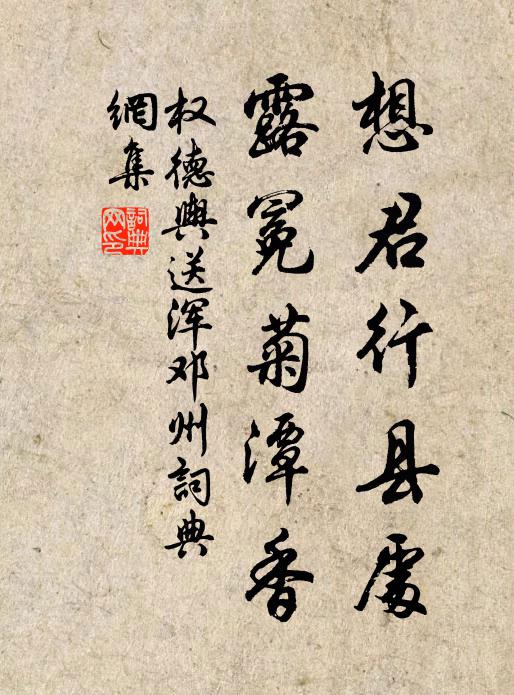 想君行县处
露冕菊潭香
权德舆送浑邓州詞典
網集
詞典
网印